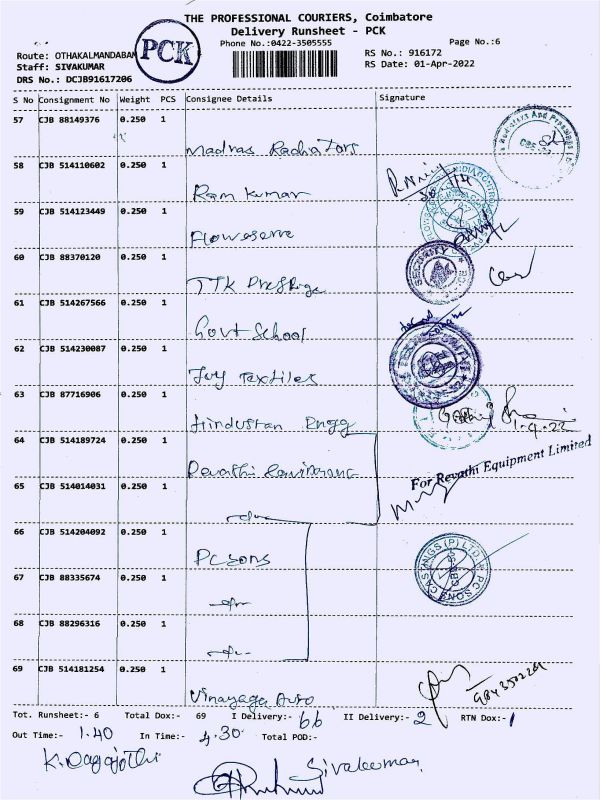 THE PROFESSIONAL COURIERS, Coimbatore
Delivery Runsheet - PCK
Phone No.:0422-3505555
Page No.:6
PCK
Route: OTHAKALMANDABAM
Staff: SIVAKUMAR
DRS No.: DCJB91617206
RS No.: 916172
RS Date: 01-Apr-2022
S No Consignment No Weight PCS Consignee Details Signature
57 CJB 88149376 0.250 1
Madras Radiators
58 CJB 514110602 0.250 1
Ram kumar
59 CJB 514123449 0.250 1
Flowserve
60 CJB 88370120 0.250 1
TTK Prestige
SECURITY
61 CJB 514267566 0.250 1
Govt School
62 CJB 514230087 0.250 1
Joy Textiles
63 CJB 87716906 0.250 1
Hindustan Engg
1-4-22
64 CJB 514189724 0.250 1
Revathi Equipment
For Revathi Equipment Limited
65 CJB 514014031 0.250 1
-do-
66 CJB 514204092 0.250 1
PC sons
PCSONS CASTINGS (P) LTD
67 CJB 88335674 0.250 1
-do-
68 CJB 88296316 0.250 1
-do-
69 CJB 514181254 0.250 1
Vinayaga Auto
Tot. Runsheet:- 6 Total Dox:- 69 I Delivery:- 66 II Delivery:- 2 RTN Dox:- 1
Out Time:- 1.40 In Time:- 4.30 Total POD:-
Sivakumar